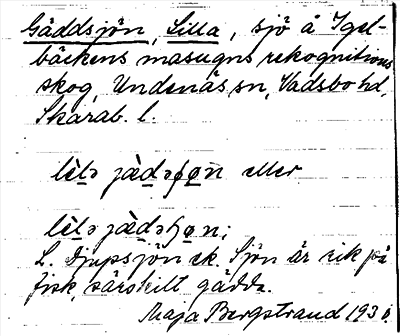 Gäddsjön, Lilla, sjö å Igel-
bäckens masugns rekognitions
skog, Undenäs sn, Vadsbo hd,
Skarab. l.
lìtə jæ̀dəʃo̱n eller
lìtə jæ̀dəɧo̱n;
L. Djupsjön ek. Sjön är rik på
fisk, särskilt gädda.
Maja Bergstrand 193